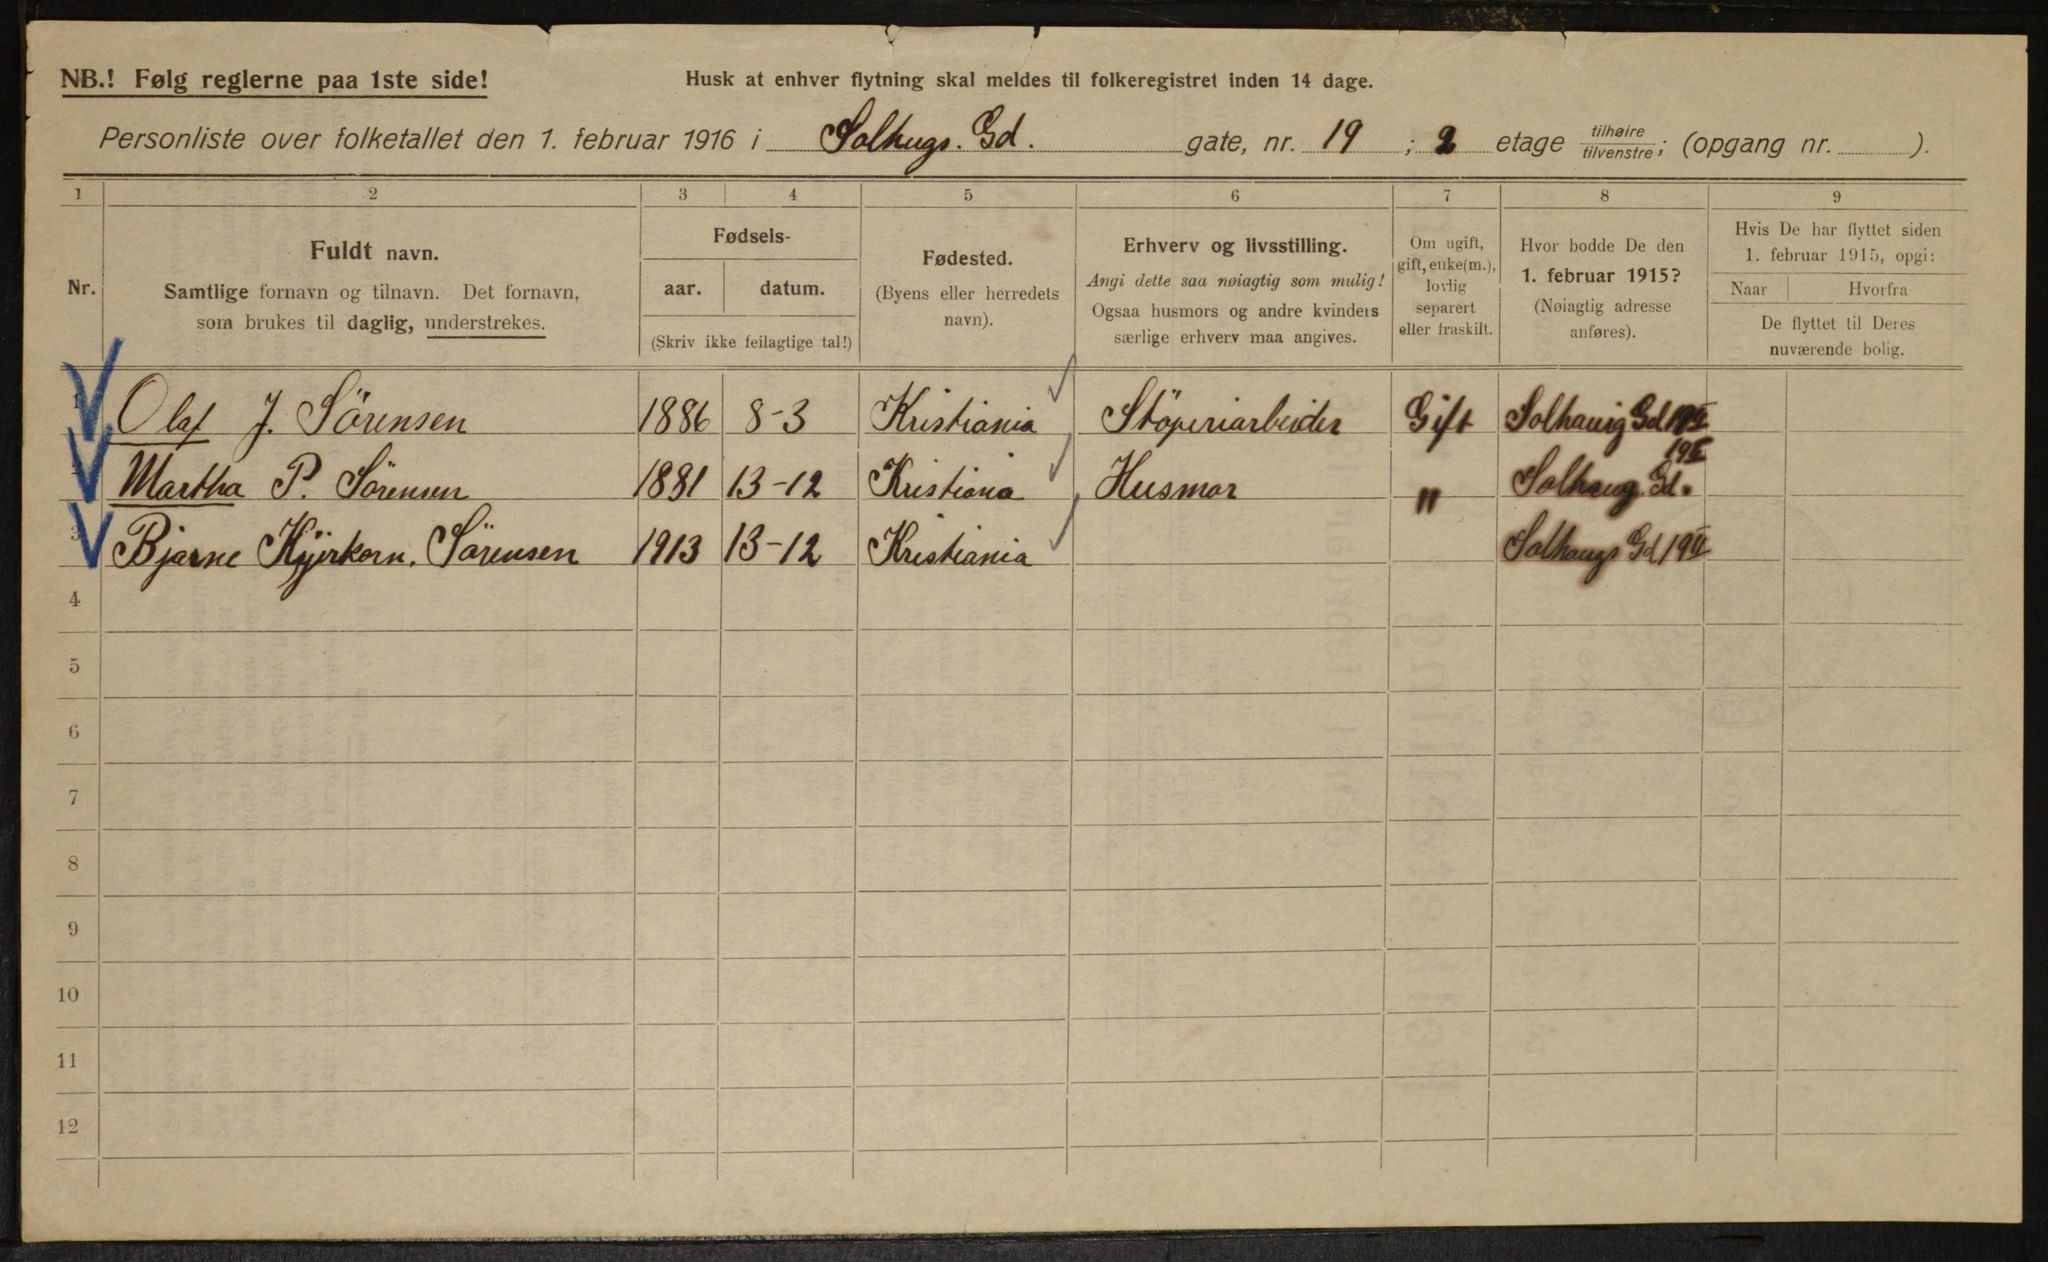 NB.! Følg reglerne paa 1ste side! Husk at enhver flytning skal meldes til folkeregistret inden 14 dage.
Personliste over folketallet den 1. februar 1916 i Solhugs. Gd. gate, nr. 19 ; 2 etage tilhøire/tilvenstre; (opgang nr. ).
1 2 3 4 5 6 7 8 9
Nr.
Fuldt navn.
Samtlige fornavn og tilnavn. Det fornavn,
som brukes til daglig, understrekes.
Fødsels-
aar. datum.
(Skriv ikke feilagtige tal!)
Fødested.
(Byens eller herredets
navn).
Erhverv og livsstilling.
Angi dette saa nøiagtig som mulig!
Ogsaa husmors og andre kvinders
særlige erhverv maa angives.
Om ugift,
gift, enke(m.),
lovlig
separert
eller fraskilt.
Hvor bodde De den
1. februar 1915?
(Nøiagtig adresse
anføres).
Hvis De har flyttet siden
1. februar 1915, opgi:
Naar Hvorfra
De flyttet til Deres
nuværende bolig.
1 Olaf J. Sörensen 1886 8-3 Kristiania Stöperiarbeider Gift Solhaug Gd 19 II
2 Martha P. Sörensen 1881 13-12 Kristiania Husmor " Solhaug. Gd. 19 II
3 Bjarne Sörensen 1913 13-12 Kristiania Solhaugs Gd 19 II
4
5
6
7
8
9
10
11
12